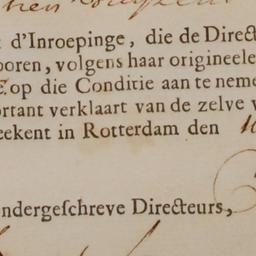 d'Inroepinge, die de Direct
ooren, volgens haar origineele
op die Conditie aan te neme
ortant verklaart van de zelve v
eekent in Rotterdam den
ndergeſchreve Directeurs,